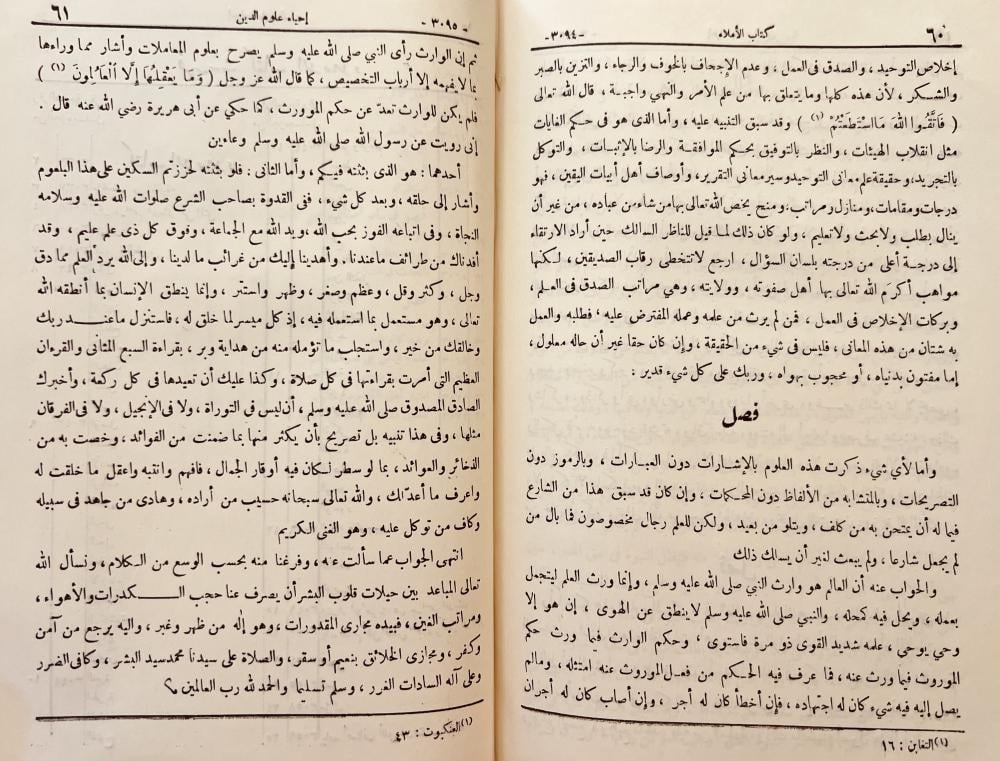 ٦٠
كتاب الأملاء
-٣٠٩٤-
إخلاص التوحيد ، والصدق فى العمل ، وعدم الإجحاف بالخوف والرجاء ، والتزين بالصبر
والشكر ، لأن هذه كلها وما يتعلق بها من علم الأمر والنهي واجبة ، قال الله تعالى
( فَاتَّقُوا اللهَ مَا اسْتَطَعْتُمْ (١) ) وقد سبق التنبيه عليه ، وأما الذى هو فى حكم الغايات
مثل انقلاب الهيئات ، والنظر بالتوفيق بحكم الموافقة والرضا بالإثبات ، والتوكل
بالتجريد ، وحقيقة علم معانى التوحيد وسير معانى التقرير ، وأوصاف أهل أبيات اليقين ، فهو
درجات ومقامات ، ومنازل ومراتب ، ومنح يخص الله تعالى بها من شاء من عباده ، من غير أن
ينال بطلب ولا بحث ولا تعليم ، ولو كان ذلك لما قيل للناظر السالك حين أراد الارتقاء
إلى درجة أعلى من درجته بلسان السؤال ، ارجع لا تتخطى رقاب الصديقين ، لكنها
مواهب أكرم الله تعالى بها أهل صفوته ، وولايته ، وهي مراتب الصدق فى العلم ،
وبركات الإخلاص فى العمل ، فمن لم يرث من علمه وعمله المفترض عليه ، فطلبه والعمل
به شتان من هذه المعانى ، فليس فى شيء من الحقيقة ، وإن كان حقا غير أن حاله معلول ،
إما مفتون بدنياه ، أو محجوب بهواه ، وربك على كل شيء قدير :
فصل
وأما لأي شيء ذكرت هذه العلوم بالإشارات دون العبارات ، وبالرموز دون
التصريحات ، وبالمتشابه من الألفاظ دون المحكمات ، وإن كان قد سبق هذا من الشارع
فيما له أن يمتحن به من كلف ، ويتلو من بعيد ، ولكن للعلم رجال مخصوصون فما بال من
لم يجعل شارعا ، ولم يبعث لغير أن يسالك ذلك
والجواب عنه أن العالم هو وارث النبي صلى الله عليه وسلم ، وإنما ورث العلم ليتجمل
بعمله ، ويحل فيه كمحله ، والنبي صلى الله عليه وسلم لا ينطق عن الهوى ، إن هو إلا
وحي يوحى ، علمه شديد القوى ذو مرة فاستوى ، وحكم الوارث فيما ورث حكم
الموروث فيما ورث عنه ، فما عرف فيه الحكم من فعل الموروث عنه امتثله ، ومالم
يصل إليه فيه شيء كان له اجتهاده ، فإن أخطأ كان له أجر ، وإن أصاب كان له أجران
(١) التغابن : ١٦
-٣٠٩٥-
إحياء علوم الدين
٦١
ثم إن الوارث رأى النبي صلى الله عليه وسلم يصرح بعلوم المعاملات وأشار مما وراءها
بما لا يفهمه إلا أرباب التخصيص ، كما قال الله عز وجل ( وَمَا يَعْقِلُهَا إِلَّا الْعَالِمُونَ (١) )
فلم يكن للوارث تعد عن حكم الموروث ، كما حكي عن أبى هريرة رضي الله عنه قال .
إنى رويت عن رسول الله صلى الله عليه وسلم وعاءين
أحدهما : هو الذى بثثته فيكم ، وأما الثانى : فلو بثثته لحززتم السكين على هذا البلعوم
وأشار إلى حلقه ، وبعد كل شيء ، ففى القدوة بصاحب الشرع صلوات الله عليه وسلامه
النجاة ، وفى اتباعه الفوز بحب الله ، ويد الله مع الجماعة ، وفوق كل ذى علم عليم ، وقد
أفدناك من طرائف ماعندنا . وأهدينا إليك من غرائب ما لدينا ، وإلى الله يرد العلم مما دق
وجل ، وكثر وقل ، وعظم وصغر ، وظهر واستتر ، وإنما ينطق الإنسان بما أنطقه الله
تعالى ، وهو مستعمل بما استعمله فيه ، إذ كل ميسر لما خلق له ، فاستنزل ماعند ربك
وخالقك من خير ، واستجلب ما تؤمله منه من هداية وبر ، بقراءة السبع المثانى والقرءان
العظيم التى أمرت بقراءتها فى كل صلاة ، وكذا عليك أن تعيدها فى كل ركعة ، وأخبرك
الصادق المصدوق صلى الله عليه وسلم ، أن ليس فى التوراة ، ولا فى الإنجيل ، ولا فى الفرقان
مثلها ، وفى هذا تنبيه بل تصريح بأن يكثر منها بما ضمنت من الفوائد ، وخصت به من
الذخائر والعوائد ، بما لو سطر لكان فيه أوقار الجمال ، فافهم وانتبه واعقل ما خلقت له
واعرف ما أعد لك ، والله تعالى سبحانه حسيب من أراده ، وهادى من جاهد فى سبيله
وكاف من توكل عليه ، وهو الغنى الكريم
انتهى الجواب عما سألت عنه ، وفرغنا منه بحسب الوسع من الكلام ، ونسأل الله
تعالى المباعد بين حيلات قلوب البشر أن يصرف عنا حجب الكدرات والأهواء ،
ومراتب الغين ، فبيده مجارى المقدورات ، وهو إله من ظهر وغبر ، واليه يرجع من آمن
وكفر ، ومجازى الخلائق بنعيم أو سقر ، والصلاة على سيدنا محمد سيد البشر ، وكافى الضرر
وعلى آله السادات الغرر ، وسلم تسليما والحمد لله رب العالمين ؟
(١) العنكبوت : ٤٣